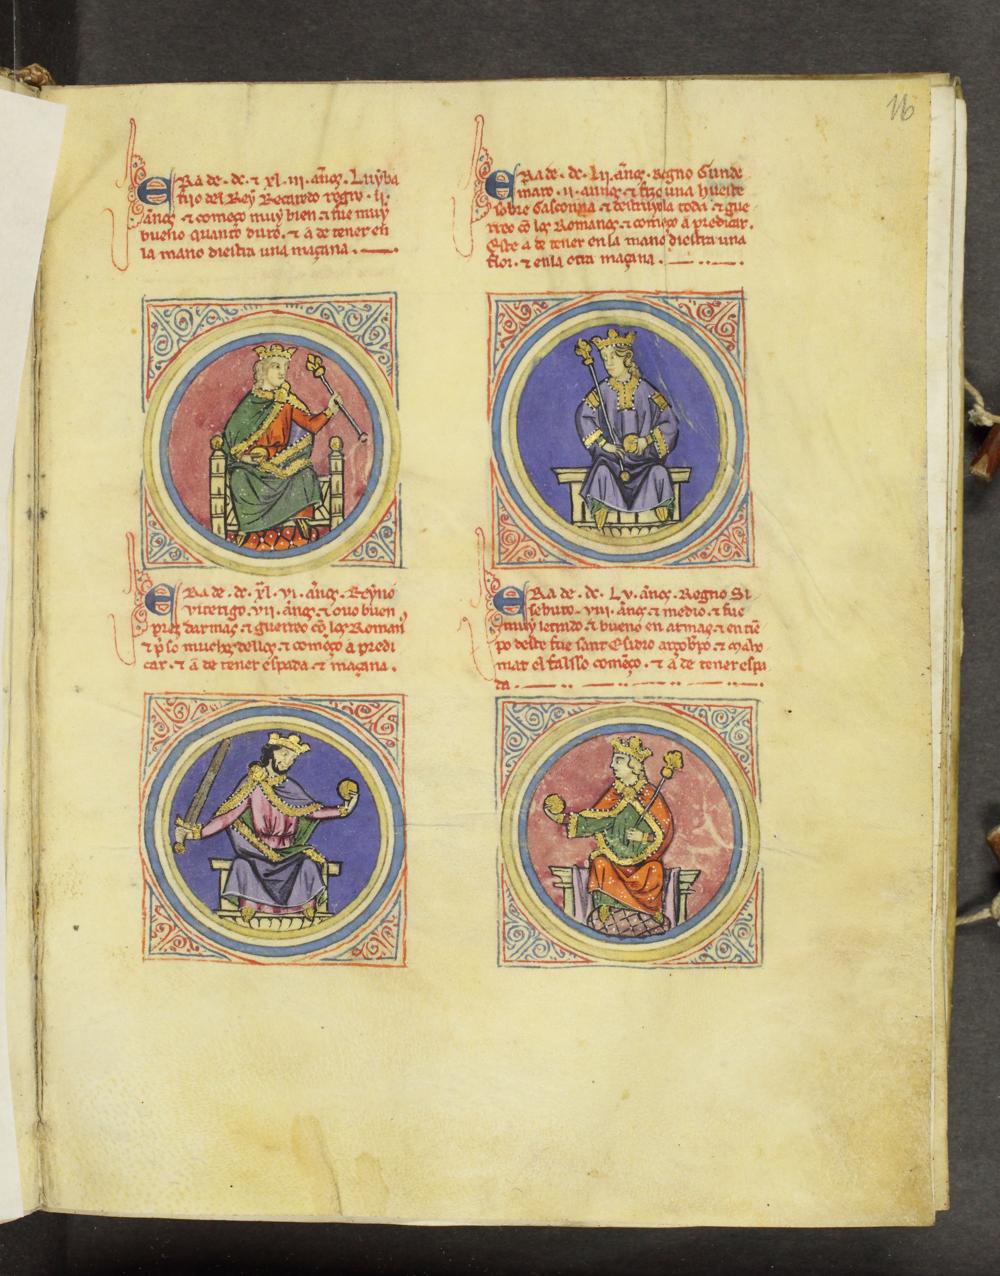 16
ERA de .dc. τ xl.iii. años. Luyba
fijo del Rey Recaredo regno .ii.
años τ começo muy bien τ fue muy
bueno quanto duro. τ a de tener en
la mano diestra una maçana.
ERa de .dc. xl.vi. años. Reyno
viterigo .vii. años. τ ovo buen
prez darmas τ guerreo cō los Roman
τ pso muchos dellos τ començo a predi
car. τ a de tener espada τ maçana.
ERa de .dc. Lii. años. Regno Gunde
maro .ii. annos τ fizo una hueste
sobre Gasconna τ destruyola toda τ gue
rreo cō los Romanos. τ começo a predicar.
Este a de tener en la mano diestra una
flor. τ en la otra maçana.
ERa de .dc. Lv. años. Regno Si
sebuto .viii. años τ medio. τ fue
muy letrado τ bueno en armas. τ en tiē
po deste fue sant Esidro arçobpo τ Maho
mat el falsso començo. τ a de tener espa
da.